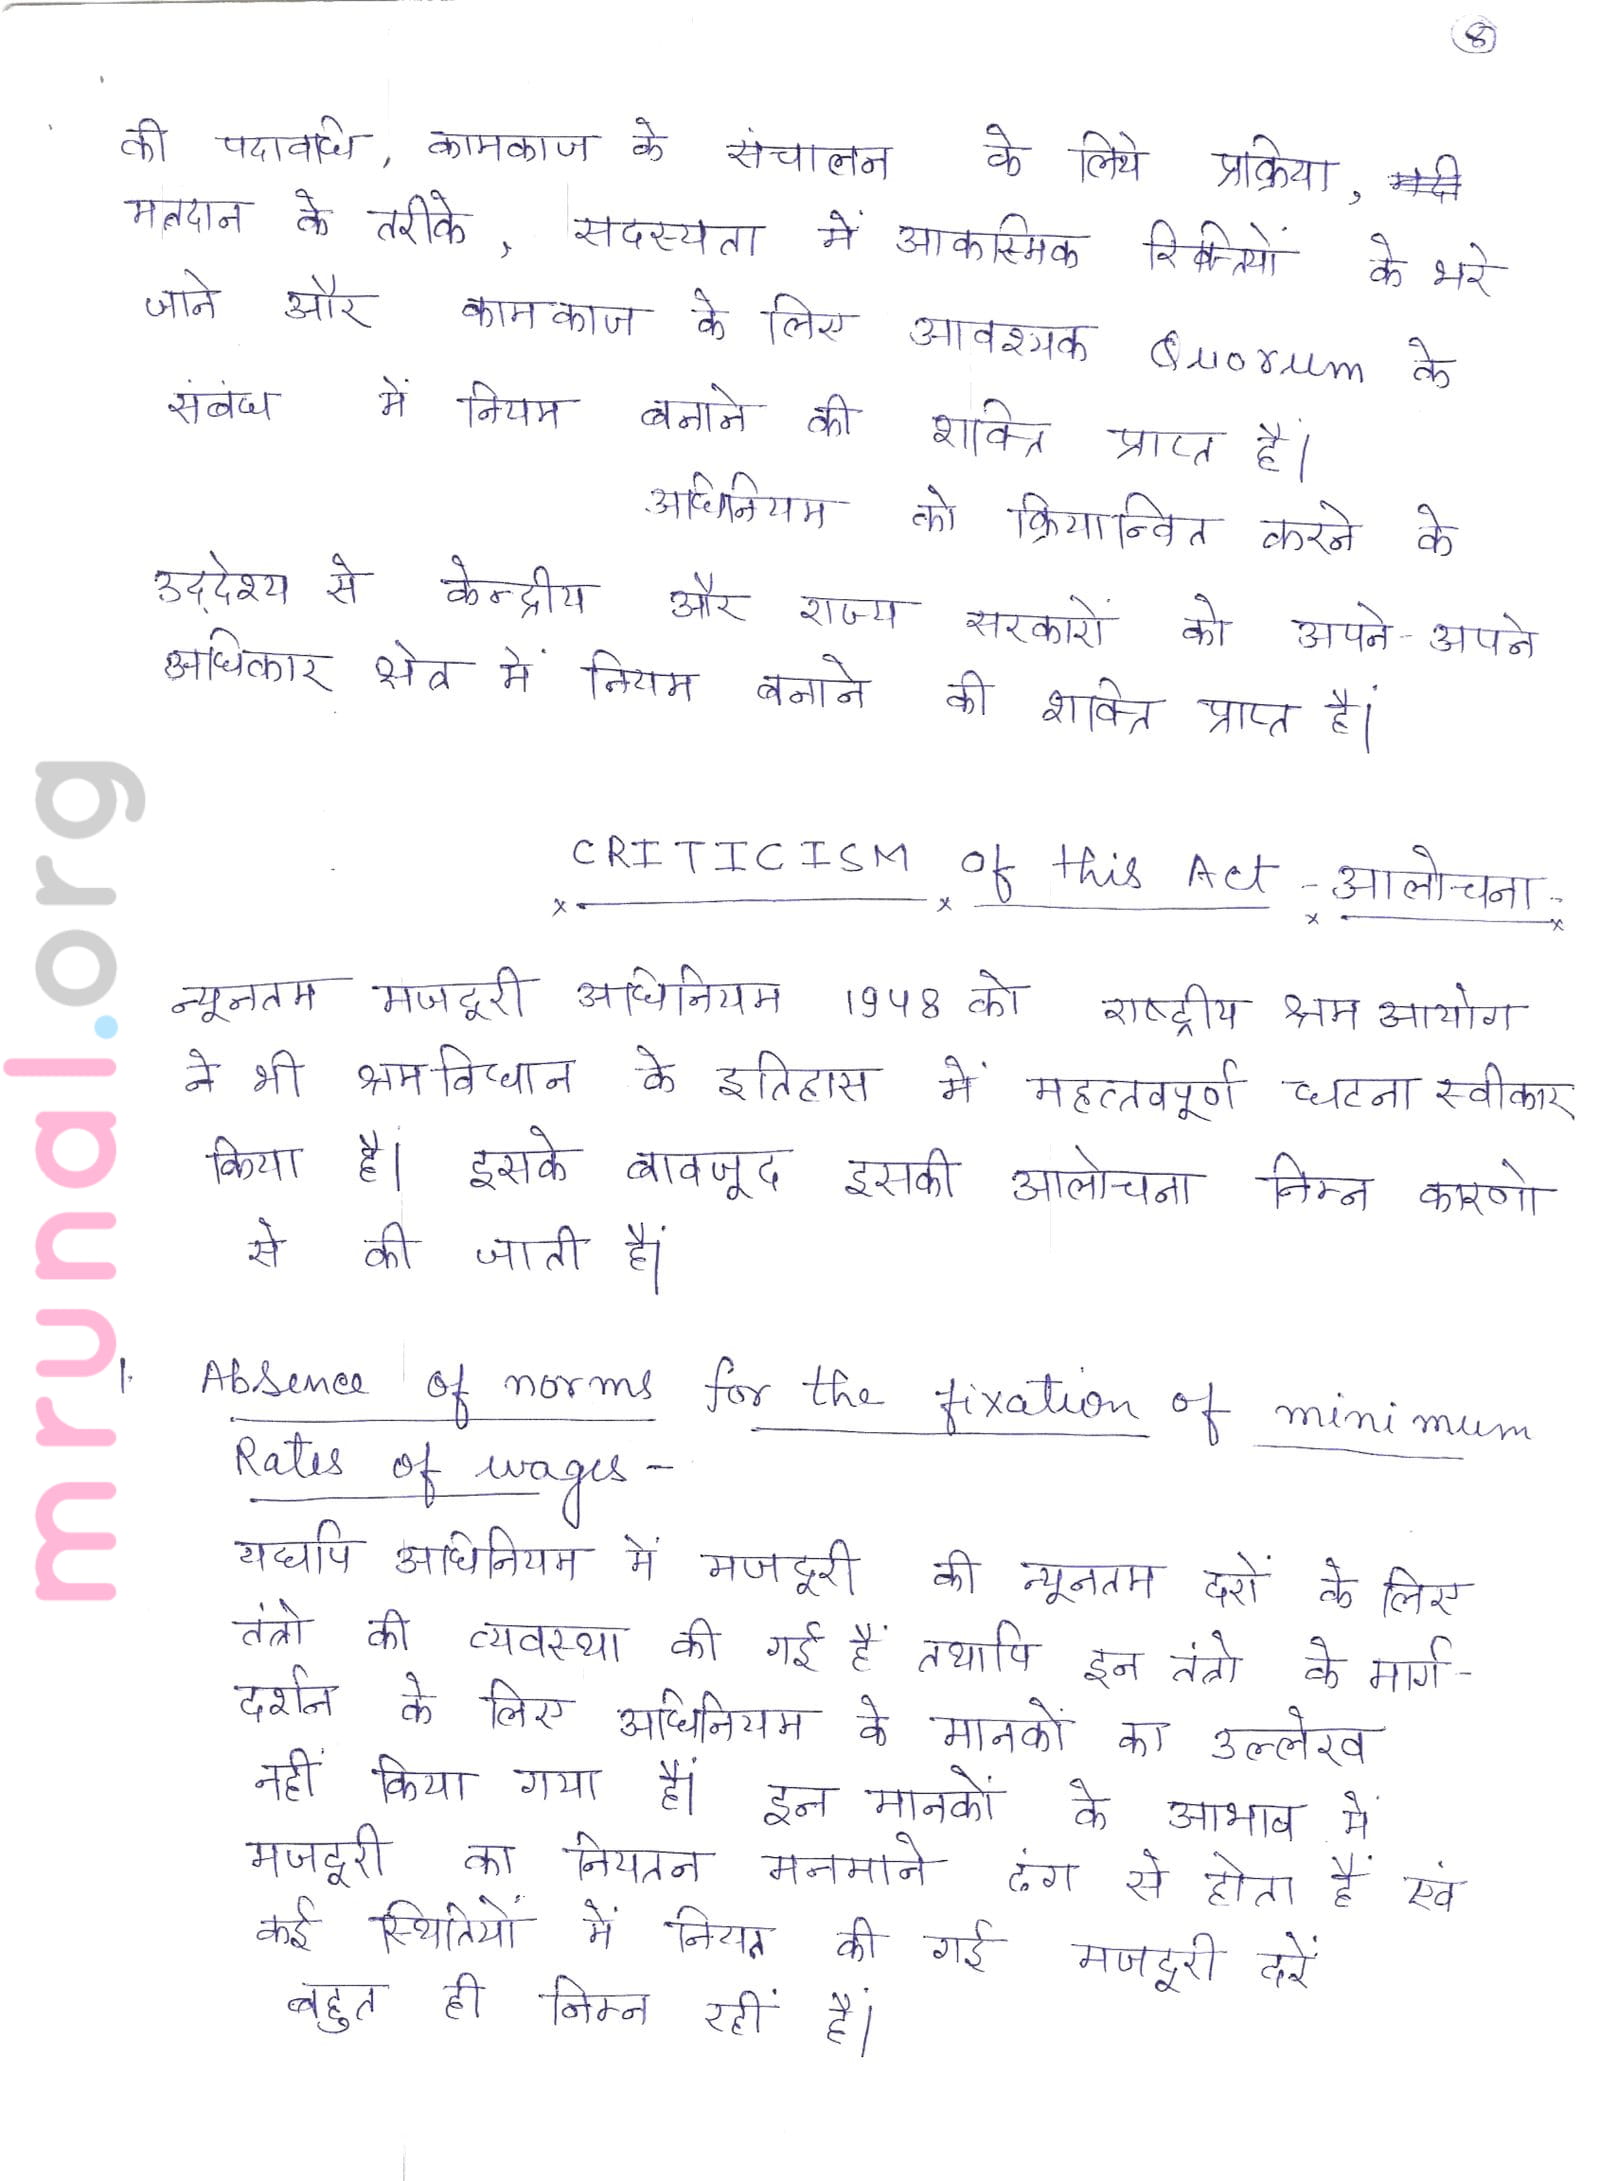 8
की पदावधि, कामकाज के संचालन के लिये प्रक्रिया,
मतदान के तरीके, सदस्यता में आकस्मिक रिक्तियों के भरे
जाने और कामकाज के लिए आवश्यक Quorum के
संबंध में नियम बनाने की शक्ति प्राप्त हैं।
अधिनियम को क्रियान्वित करने के
उद्देश्य से केन्द्रीय और राज्य सरकारों को अपने-अपने
अधिकार क्षेत्र में नियम बनाने की शक्ति प्राप्त हैं।
CRITICISM of this Act - आलोचना -
न्यूनतम मजदूरी अधिनियम 1948 को राष्ट्रीय श्रम आयोग
ने भी श्रमविधान के इतिहास में महत्तवपूर्ण घटना स्वीकार
किया है। इसके बावजूद इसकी आलोचना निम्न कारणो
से की जाती हैं।
1. Absence of norms for the fixation of minimum
Rates of wages -
यद्यपि अधिनियम में मजदूरी की न्यूनतम दरों के लिए
तंत्रो की व्यवस्था की गई हैं तथापि इन तंत्रो के मार्ग-
दर्शन के लिए अधिनियम के मानकों का उल्लेख
नहीं किया गया हैं। इन मानकों के आभाव में
मजदूरी का नियतन मनमाने ढंग से होता हैं एवं
कई स्थितियों में नियत की गई मजदूरी दरें
बहुत ही निम्न रहीं हैं।
mrunal.org